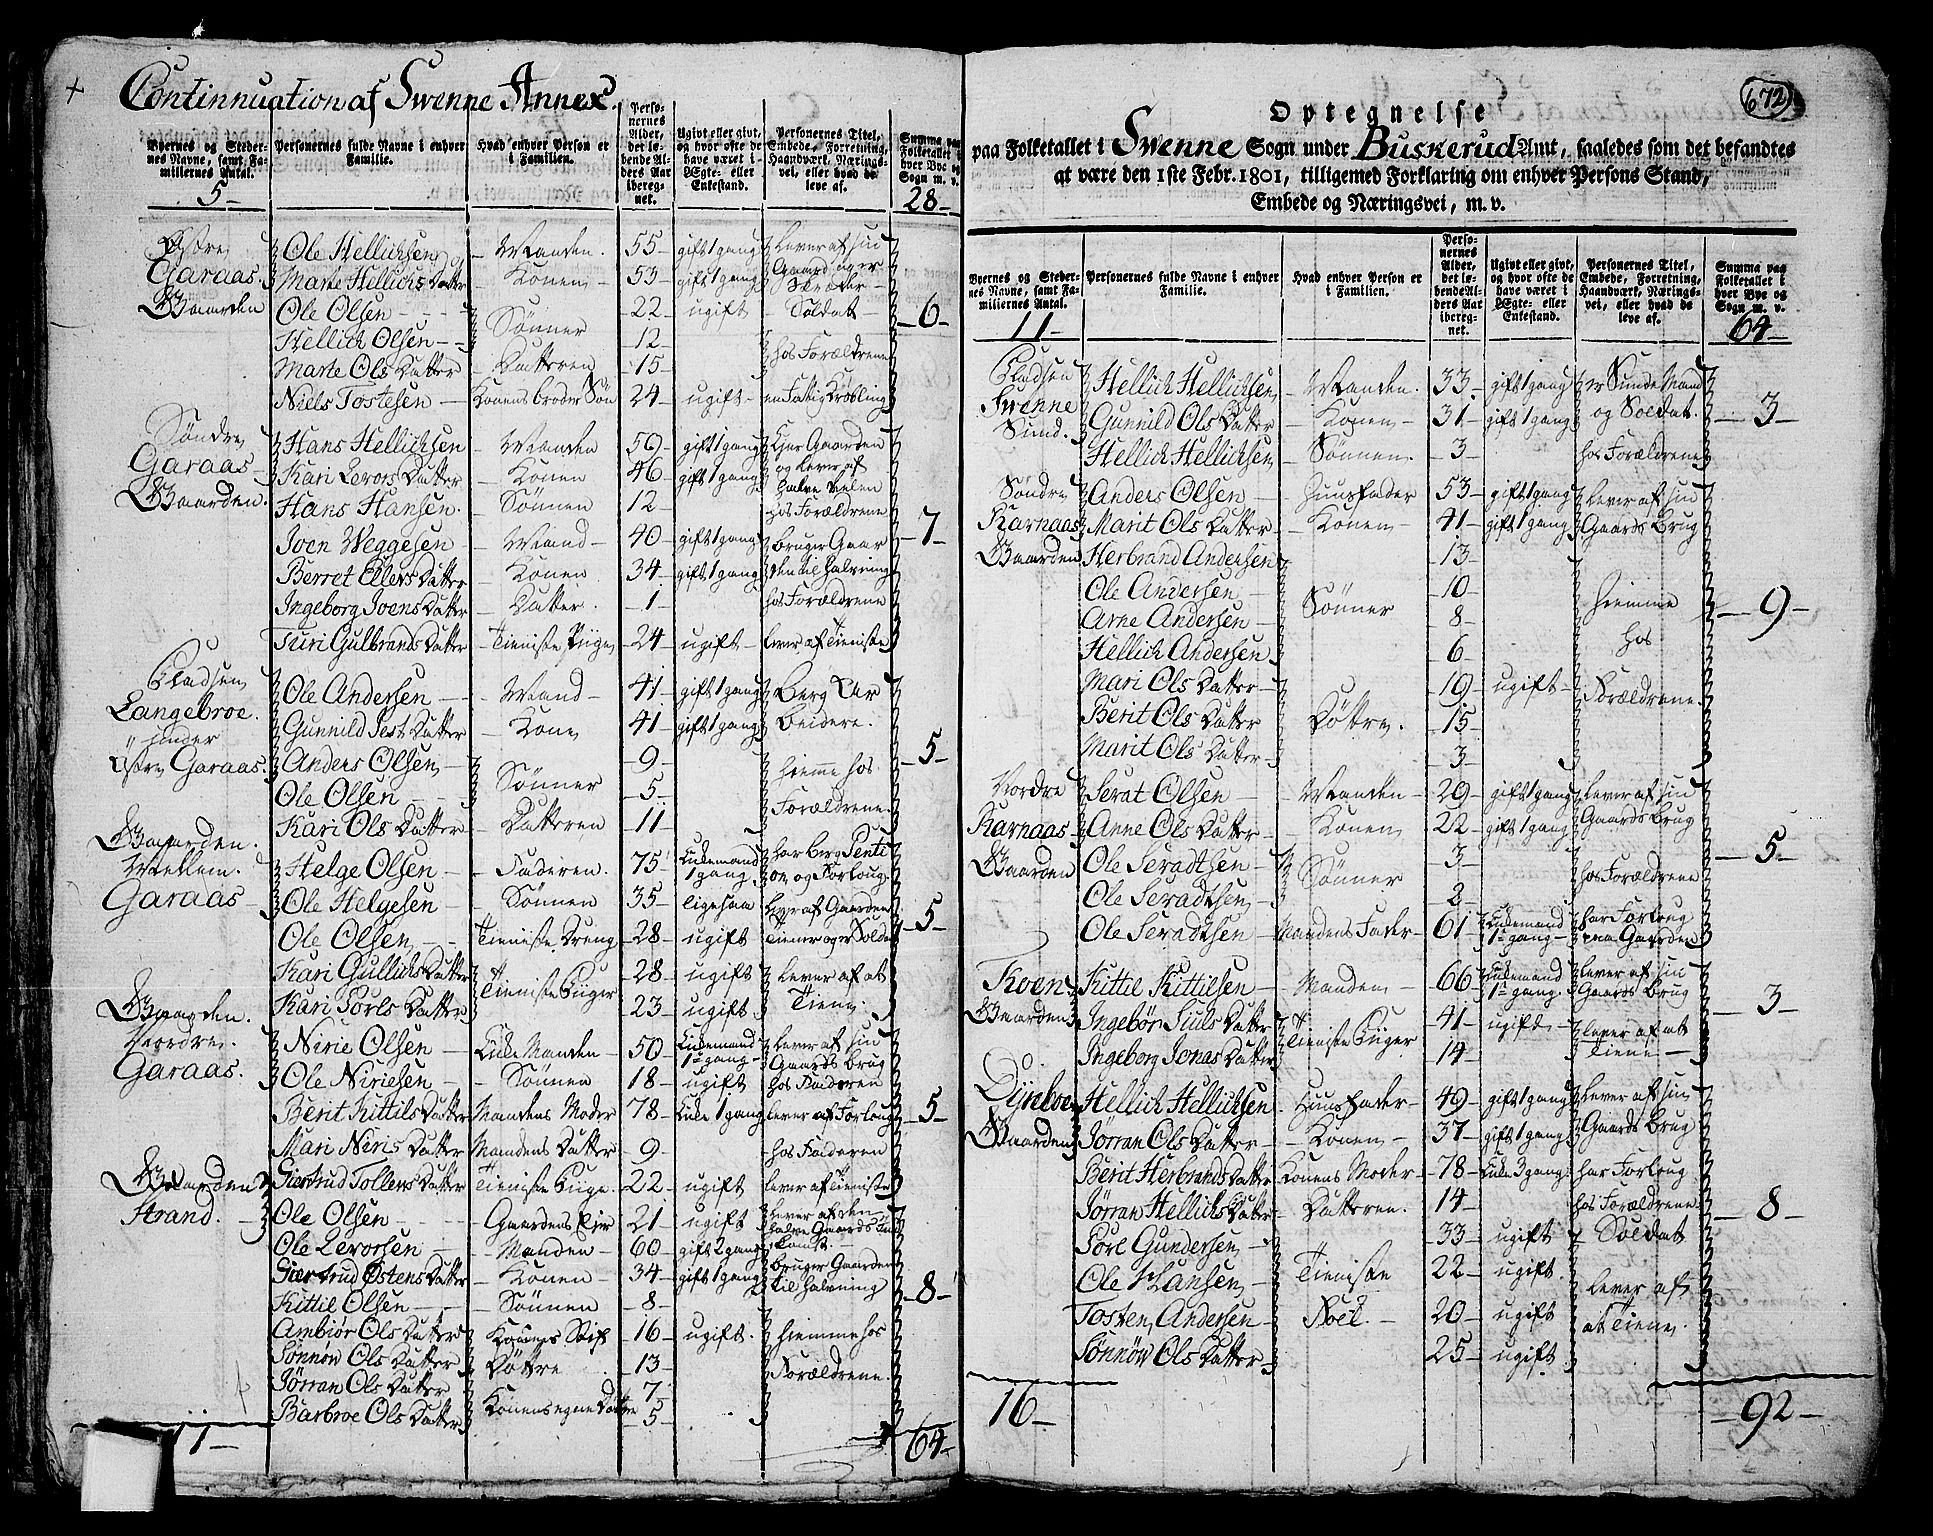 Continnuation af Swenne Annex.
Byernes og Steder-
nes Navne, samt Fa-
miliernes Antal.
Personernes fulde Navne i enhver
Familie.
Hvad enhver Person er
i Familien.
Perso-
nernes
Alder,
det lø-
bende Al-
ders Aar
ibereg-
net.
Ugivt eller givt,
og hvor ofte de
have været i
Ægte- eller
Enkestand.
Personernes Titel,
Embede, Forretning,
Haandværk, Nærings-
vei, eller hvad de
leve af.
Summa paa
Folketallet i
hver Bye og
Sogn m. v.
5- 28-
Østre Ole Hellichsen og - Manden. 55- gift 1 gang Lever af sin
Garaas. Marte Hellichs Datter - Konen - 53- gift 1 gang Gaard og er Skræder -
Gaarden Ole Olsen - - - Sönner 22- ugift - Soldat - -6-
Hellich Olsen - - 12-
Marte Ols Datter - Datteren - 15- hos Forældrene
Niels Tostesen - Konens broder Sön 24- ugift - en Fattig Kröbling
Söndre Hans Hellichsen - Manden 50- gift 1 gang Ejer Gaarden
Garaas - Kari Levors Datter - Konen 46- gift 1 gang og lever af halve delen
Gaarden. Hans Hansen. - Sönnen 12- hos Forældrene
Joen Weggesen - Mand - 40- gift 1 gang bruger Gaar -7-
Berret Ellers Datter - Konen 34- gift 1 gang den til halvning
Ingeborg Joens Datter - Datter. -1- hos Forældrene
Turi Gulbrands Datter - Tieniste Piige 24- ugift - lever af Tieniste
Pladsen Ole Andersen - - Mand - 41- gift 1 gang Berg Ar
Langebroe. Gunnild Jest Datter - Kone 41- gift 1 gang beidere.
under Anders Olsen - Sönner -9- hiemme hos -5-
Østre Garaas. Ole Olsen - - -5- Forældrene
Kari Ols Datter - Datteren -11-
Gaarden.
Mellem. Helge Olsen - - Faderen. 75- Enkemand 1 gang har berg Penti on og Forloug
Garaas - Ole Helgesen - - Sönnen 35- ligesaa lever af Gaarden -5-
Ole Olsen - - Tieniste Dreng 28- ugift Tiener og er Soldat
Kari Gullichs Datter Tieniste Piiger 28- ugift lever af at
Gaarden. Kari Torls Datter 23- ugift Tiene.
Nordre. Nirie Olsen - Enke Manden - 50- Enkemand 1 gang - Lever af sin Gaards Brug
Garaas. Ole Niriesen - - Sönnen 18- ugift hos Faderen
Berit Kittils Datter Mandens Moder 78- Enke 1 gang lever af Forloug -5-
Mari Neris Datter Mandens Datter 9- hos Faderen
Gaarden Giertrud Tollens Datter Tieniste Piige. 22- ugift lever af Tieniste
Strand. - Ole Olsen - - Gaardens Ejer 21- ugift lever af den halve Gaards Ind komst. -
Ole Levorsen - - Manden - 60- gift 2 gang bruger Gaarden
Giertrud Østens Datter - Konen - 34- gift 1 gang til halvning -8-
Kittil Olsen - - - Sönnen - 8-
Ambiør Ols Datter Konens Stif 16- ugift. hiemme hos
Sønnøw Ols Datter Döttre 13- Forældrene.
Jørran Ols Datter 7-
Barbroe Ols Datter Konens egne Döttre 5-
11- 64-
672
Optegnelse
paa Folketallet i Swenne Sogn under Buskerud Amt, saaledes som det befandtes
at være den 1ste Febr. 1801, tilligemed Forklaring om enhver Persons Stand,
Embede og Næringsvei, m. v.
Byernes og Steder-
nes Navne, samt Fa-
miliernes Antal.
Personernes fulde Navne i enhver
Familie.
Hvad enhver Person er
i Familien.
Perso-
nernes
Alder,
det lø-
bende Al-
ders Aar
ibereg-
net.
Ugivt eller givt,
og hvor ofte de
have været i
Ægte- eller
Enkestand.
Personernes Titel,
Embede, Forretning,
Haandværk, Nærings-
vei, eller hvad de
leve af.
Summa paa
Folketallet i
hver Bye og
Sogn m. v.
11- 64-
Pladsen Hellich Hellichsen - Manden. 33- gift 1 gang er Sunde Mand
Swenne Gunnild Ols Datter - Konen - 31- gift 1 gang og Soldat. -3-
Sund. Hellich Hellichsen - Sönnen. - 3- hos Forældrene
Söndre Anders Olsen - Huusfader 53- gift 1 gang Lever af sin
Karnaas Marit Ols Datter - Konen - 41- gift 1 gang Gaards Brug
Gaarden Herbrand Andersen -13-
Ole Andersen - Sönner -10- hiemme -9-
Arne Andersen - -8- hos
Hellich Andersen -6-
Mari Ols Datter - -19- ugift - Forældrene
Berit Ols Datter Döttre. -15-
Marit Ols Datter - -3-
Nordre Serat Olsen - - Manden - 29- gift 1 gang Lever af sin
Karnaas Anne Ols Datter - - Konen 22- gift 1 gang Gaards Brug
Gaarden Ole Seradtsen - Sönner -3- hos Forældrene -5-
Ole Seradtsen - -2-
Ole Seradtsen - Mandens Fader - 61- Enkemand 1 gang - har Forloug paa Gaarden
Roen Kittil Kittilsen - - Manden - 66- Enkemand 1 gang. Lever af sin Gaards Brug
Gaarden Ingebør Juuls Datter Tieniste Piiger 41- ugift - lever af at -3-
Ingeborg Jonas Datter 14- Tiene -
Dÿnboe Hellich Hellichsen. Huusfader - 49- gift 1 gang Lever af sin
Gaarden Jørran Ols Datter - - Konen - 37- gift 1 gang Gaards Brug
Berit Herbrands Datter Konens Moder 78- Enke 3 gang har Forloug
Jørran Hellichs Datter - Datteren. -14- hos Forældrene -8-
Torl Gundersen - 33- ugift - Soldat
Ole Hansen - Tieniste 22- ugift. lever af
Tosten Andersen - Folk. - 20- ugift at Tiene.
Sønnøw Ols Datter - 25- ugift.
16- -92-